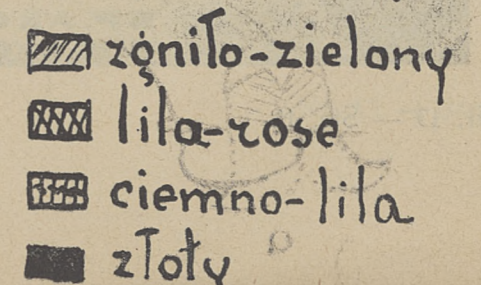 zgniło-zielony
lila-rose
ciemno-lila
złoty